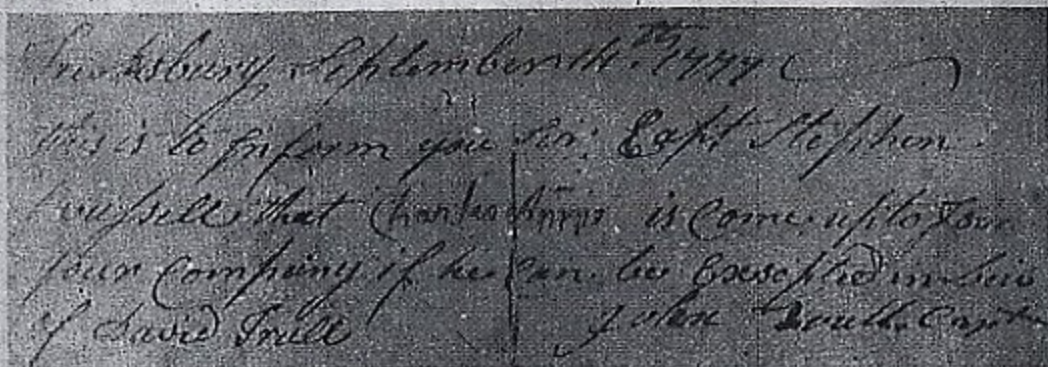 Tewksbury September 11th 1777
this is to Inform you Sir Capt Stephen
Russell that Charles is come up to Join
your Company if he can be Excepted in Lieu
of David Trull John Trull Capt